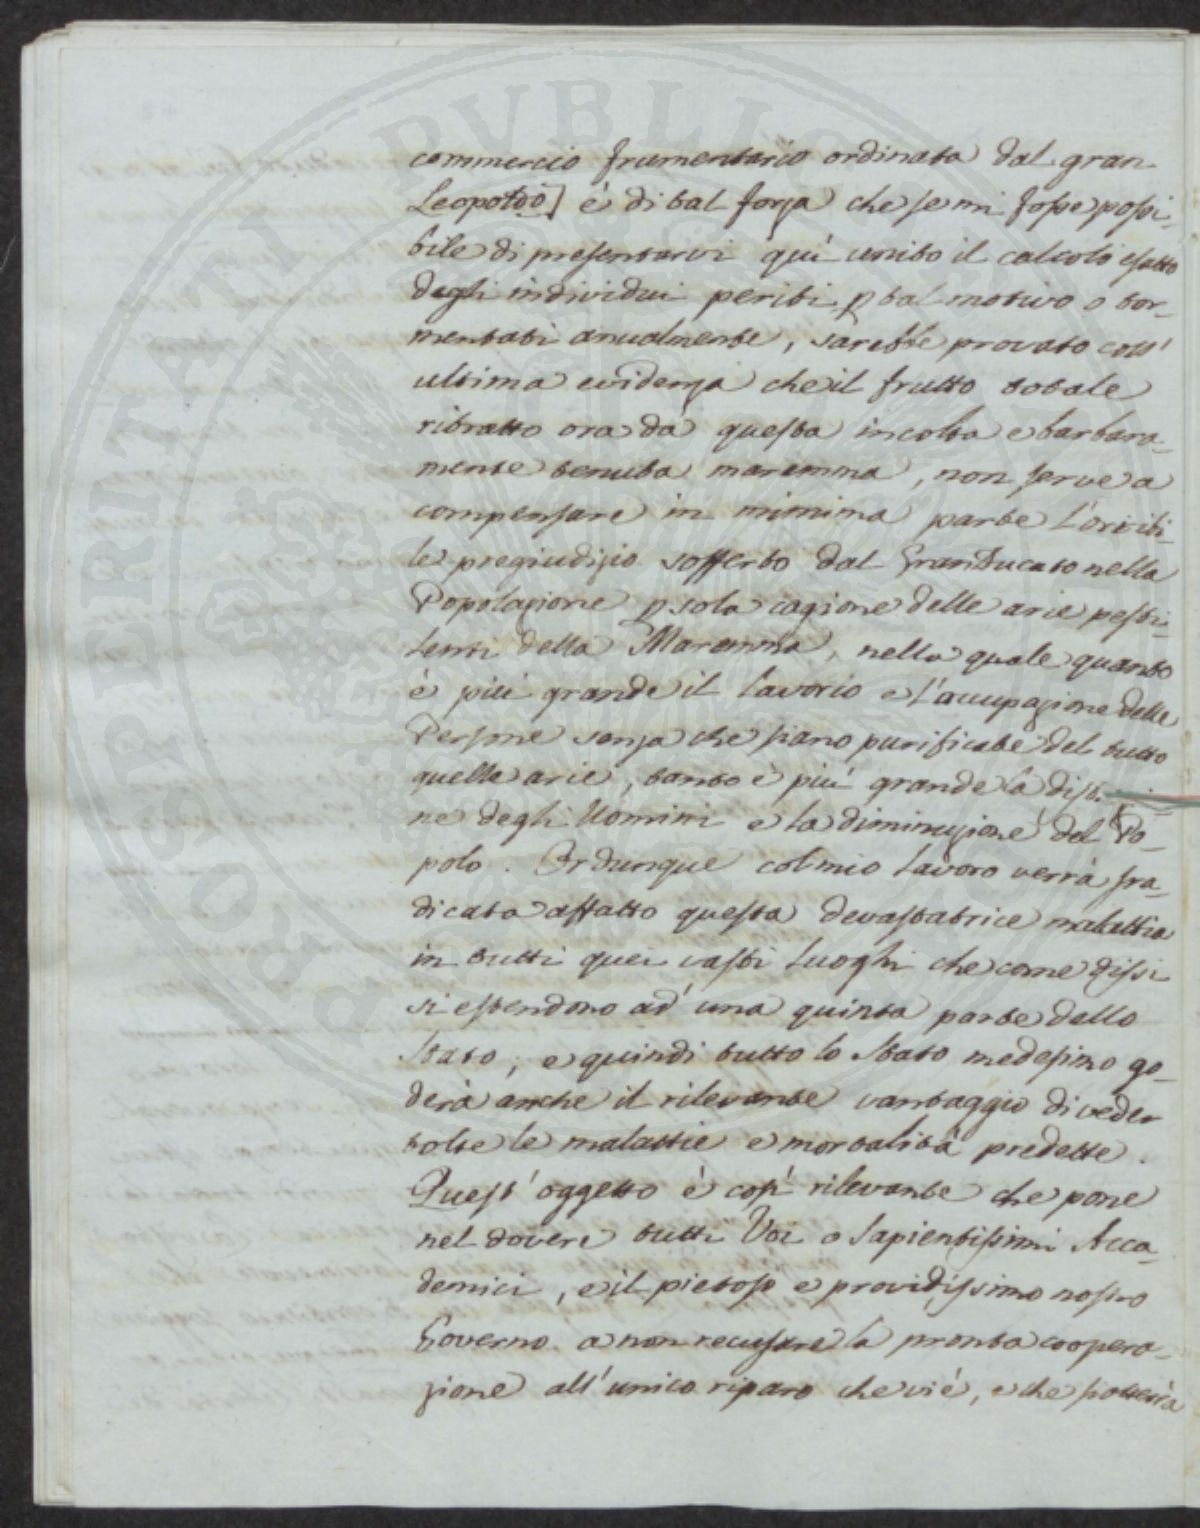 commercio frumentario ordinata dal gran
Leopoldo] è di tal forza che se mi fosse possi-
bile di presentarvi quì unito il calcolo esatto
degli individui periti p tal motivo o tor-
mentati anualmente, sarebbe provato coll'
ultima evidenza che il frutto totale
ritratto ora da questa incolta e barbara-
mente tenuta maremma, non serve a
compensare in minima parte l'orribi-
le pregiudizio sofferto dal GranDucato nella
Popolazione p sola cagione delle arie pesti-
lenti della Maremma, nella quale quanto
è più grande il lavorio e l'accupazione delle
Persone senza che siano purificate del tutto
quelle arie, tanto è più grande la dist.
ne degli Uomini e la diminuzione del Po-
polo. Or dunque col mio lavoro verrà sra-
dicata affatto questa devastatrice malattia
in tutti quei vasti luoghi che come dissi
si estendono ad una quinta parte dello
Stato, e quindi tutto lo Stato medesimo go-
derà anche il rilevante vantaggio di veder
tolte le malattie e mortalità predette.
Quest'oggetto è così rilevante che pone
nel dovere tutti Voi o Sapientissimi Acca-
demici, e il pietoso e providissimo nostro
Governo a non recusare la pronta coopera-
zione all'unico riparo che vi è, e che si otterrà
PROSPERITATI PVBLICAE